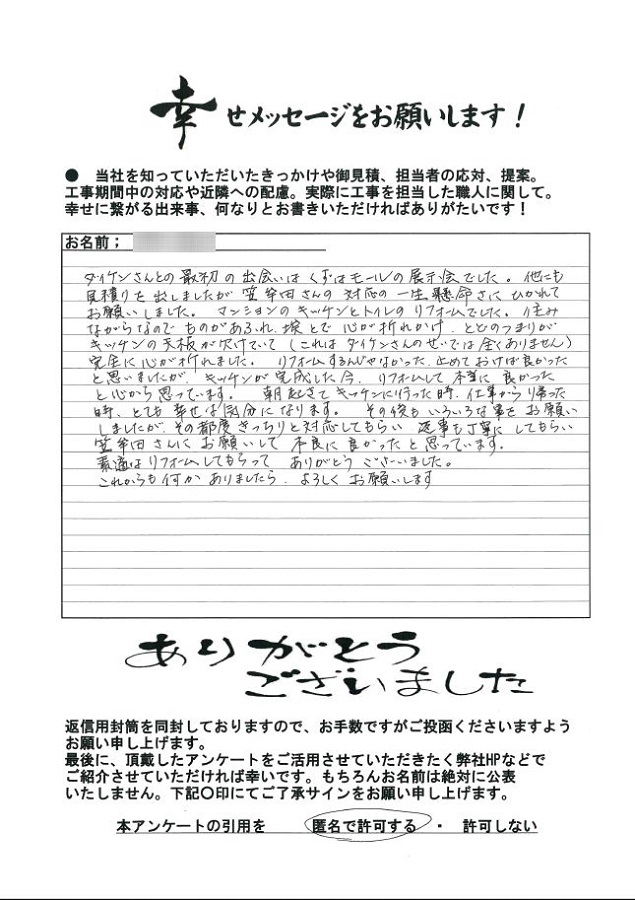 幸せメッセージをお願いします！
● 当社を知っていただいたきっかけや御見積、担当者の応対、提案。
工事期間中の対応や近隣への配慮。実際に工事を担当した職人に関して。
幸せに繋がる出来事、何なりとお書きいただければありがたいです！
お名前；
ダイケンさんとの最初の出会いはくずはモールの展示会でした。他にも
見積りを出しましたが笠牟田さんの対応の一生懸命さにひかれて
お願いしました。マンションのキッチンとトイレのリフォームでした。住み
ながらなのでものがあふれ、埃とで心が折れかけ、とどのつまりが
キッチンの天板が欠けていて（これはダイケンさんのせいでは全くありません）
完全に心が折れました。リフォームするんじゃなかった、止めておけば良かった
と思いましたが、キッチンが完成した今、リフォームして本当に良かった
と心から思っています。朝起きてキッチンに行った時、仕事から帰った
時、とても幸せな気分になります。その後もいろいろな事をお願い
しましたが、その都度きっちりと対応してもらい返事も丁寧にしてもらい
笠牟田さんにお願いして本当に良かったと思っています。
素適なリフォームしてもらってありがとうございました。
これからも何かありましたら、よろしくお願いします
ありがとう
ございました
返信用封筒を同封しておりますので、お手数ですがご投函くださいますよう
お願い申し上げます。
最後に、頂戴したアンケートをご活用させていただきたく弊社HPなどで
ご紹介させていただければ幸いです。もちろんお名前は絶対に公表
いたしません。下記〇印にてご了承サインをお願い申し上げます。
本アンケートの引用を 匿名で許可する ・ 許可しない